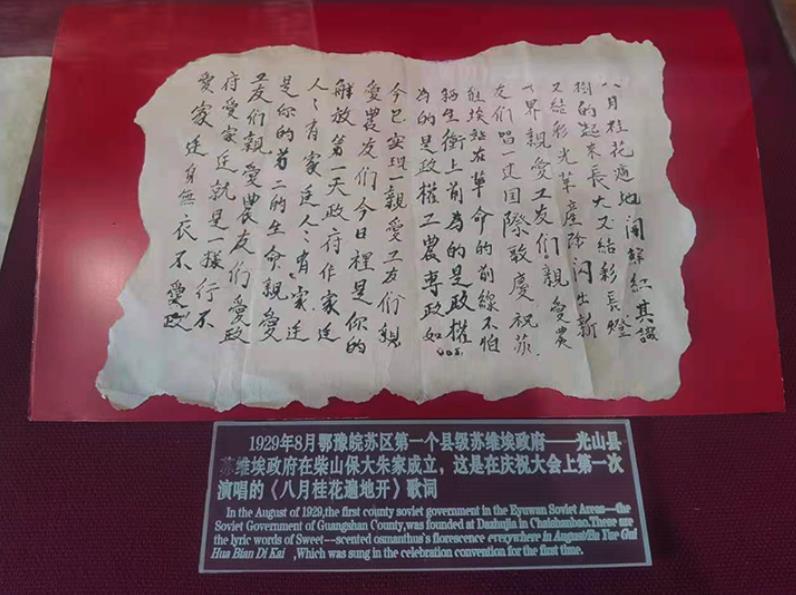 八月桂花遍地開鮮紅其識
樹的起來長大又結彩長燈
又結彩光草產階闪出新
世界親愛工友们親愛農
友们唱一边国際歌慶祝苏
維埃站在革命的前線不怕
牺生衝上前為的是政權
為的是政權工農專政如
今已实現一親爱工友们親
愛農友们今日裡是你的
解放第一天政府作家廷
人々有家廷人々有家廷
是你的第二的生命親愛
工友们親愛農友们愛政
府愛家廷就是一樣行不
愛家廷身無衣不愛政
1929年8月鄂豫皖苏区第一个县级苏维埃政府——光山县
苏维埃政府在柴山保大朱家成立，这是在庆祝大会上第一次
演唱的《八月桂花遍地开》歌词
In the August of 1929,the first county soviet government in the Eyuwan Soviet Areas—the
Soviet Government of Guangshan County,was founded at Dazhujia in Chaishanbao.These are
the lyric words of Sweet—scented osmanthus's florescence everywhere in August/Ba Yue Gui
Hua Bian Di Kai ,Which was sung in the celebration convention for the first time.